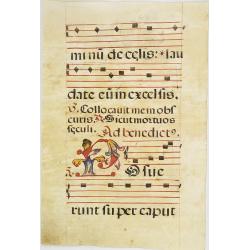 minū de celis: *lau
date eū in excelsis.
℣. Collocavit me in obs
curis. ℟. Sicut mortuos
seculi. Ad benedictꝰ.
Posue
runt super caput